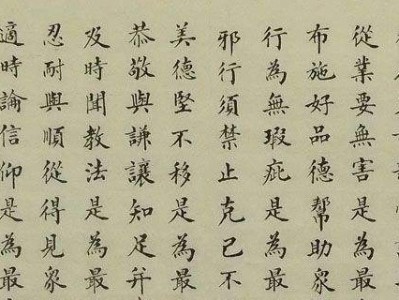 從業要無害是為最
布施好品德幫助眾
行為無瑕疵是為最
邪行須禁止克己不
美德堅不移是為最
恭敬與謙讓知足并
及時聞教法是為最
忍耐與順從得見眾
適時論信仰是為最